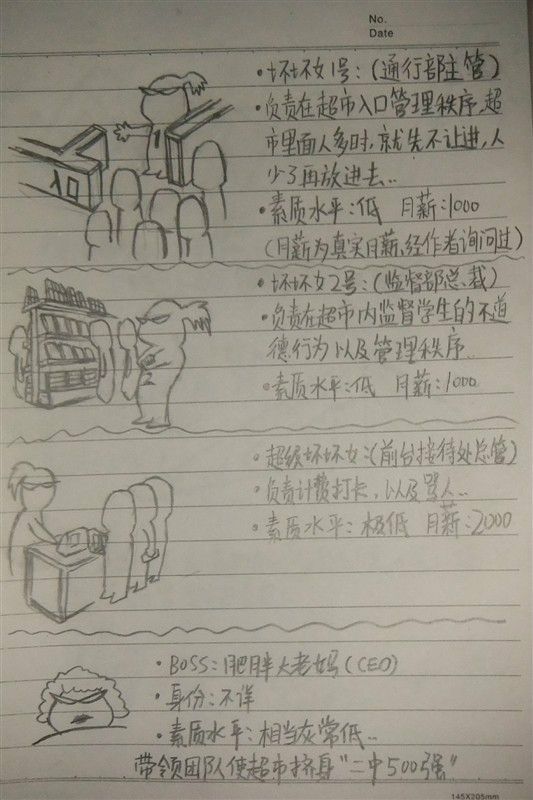 No.
Date
·坏坏女1号:(通行部主管)
·负责在超市入口管理秩序,超
市里面人多时,就先不让进,人
少了再放进去..
·素质水平:低 月薪:1000
(月薪为真实月薪,经作者询问过)
·坏坏女2号:(监督部总裁)
·负责在超市内监督学生的不道
德行为以及管理秩序..
·素质水平:低 月薪:1000
·超级坏坏女:(前台接待处总管)
·负责计费打卡,以及骂人..
·素质水平:极低 月薪:2000
·BOSS:肥胖大老妈(CEO)
·身份:不详
·素质水平:相当灰常低..
带领团队使超市挤身“二中500强”
145X205mm